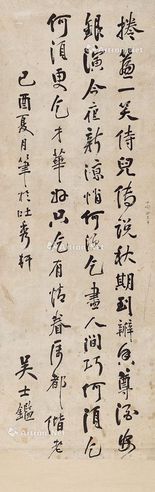 捲簾一笑侍兒傳說秋期到瓣香尊酒
銀潢今夜新涼悄何須乞盡人間巧何須乞
何須更乞才華好只乞有情眷屬都偕老
己酉夏月筆於吐秀軒
吴士鑑